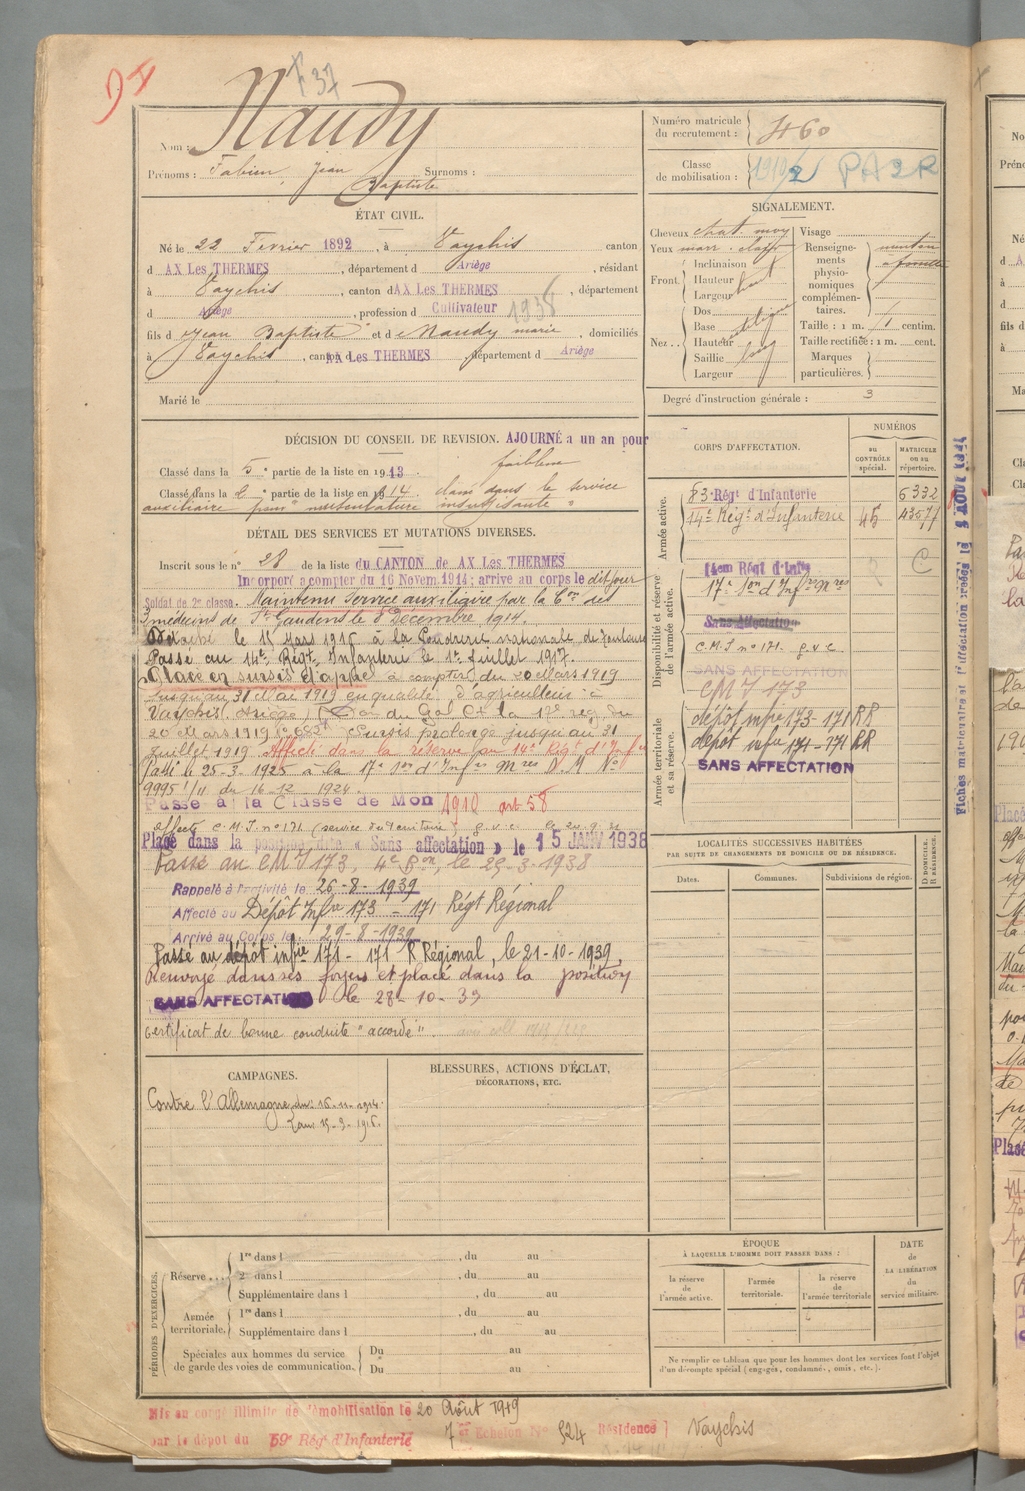 F 37
Nom : Naudy
Prénoms : Fabien, Jean Baptiste Surnoms :
Numéro matricule du recrutement : 460
Classe de mobilisation : 1910/2 PA2R
ÉTAT CIVIL.
Né le 22 Fevrier 1892, à Vaychis canton
d AX Les THERMES, département d Ariège, résidant
à Vaychis, canton d AX Les THERMES, département
d Ariège, profession d Cultivateur 1938
fils d Jean Baptiste et d Naudy marie, domiciliés
à Vaychis, canton d AX Les THERMES, département d Ariège
Marié le
SIGNALEMENT.
Cheveux chat. moy
Yeux marr. clair
Front. Inclinaison
Hauteur haut
Largeur
Nez . . Dos
Base oblique
Hauteur
Saillie long
Largeur
Visage
Renseignements physionomiques complémentaires. menton à fossette
Taille : 1 m. centim.
Taille rectifiée : 1 m. cent.
Marques particulières.
Degré d'instruction générale : 3
DÉCISION DU CONSEIL DE REVISION. AJOURNÉ a un an pour
faiblesse
Classé dans la 5e partie de la liste en 1913.
Classé dans la 2e partie de la liste en 1914. classé dans le service
auxiliaire pour insuffisante
DÉTAIL DES SERVICES ET MUTATIONS DIVERSES.
Inscrit sous le n° 28 de la liste du CANTON de AX Les THERMES
Incorporé a compter du 16 Novem. 1914; arrivé au corps le dit jour
Soldat de 2e classe. Maintenu Service auxiliaire par la Con des
3 médecins de St Gaudens le 8 Décembre 1914.
Détaché le 15 Mars 1916 à la Poudrerie nationale de Toulouse
Passé au 14e Régt Infanterie le 1er Juillet 1917.
Placé en sursis d'appel à compter du 20 Mars 1919
Jusqu'au 31 Mai 1919 en qualité d'agriculteur à
Vaychis. Ariège,
20 Mars 1919 Sursis prolongé jusqu'au 31
Juillet 1919 Affecté dans la réserve au 14e Régt d'Infie
Passé le 25-3-1925 à la 17e Son d'Infes Mres D. M. No
9995 1/11 du 16-12-1924.
Passé à la Classe de Mon 1910 art 58
affecté C.M.I n° 171 (service du Territoire) g.v.c.
Placé dans la position dite « Sans affectation » le 15 JANV 1938
Passé au CMI 173, 4e Bon, le 25-3-1938
Rappelé à l'activité le 26-8-1939
Affecté au Dépôt Infie 173 - 171 Régt Régional
Arrivé au Corps le 29-8-1939
Passé au dépôt infie 171 - 171 R Régional, le 21-10-1939
Renvoyé dans ses foyers et placé dans la position
SANS AFFECTATION le 28-10-39
Certificat de bonne conduite "accordé"
CORPS D'AFFECTATION.
NUMÉROS
au CONTRÔLE spécial.
MATRICULE ou au répertoire.
Armée active.
83e Régt d'Infanterie 6332
14e Régt d'Infanterie 45 43577
Disponibilité et réserve de l'armée active.
14em Régt d'Infie C
17e Son d'Infes Mres
Sans Affectation
C.M.I n° 171. g.v.c
SANS AFFECTATION
CMI 173
Armée territoriale et sa réserve.
dépôt infie 173-171 RR
depot infie 171-171 RR
SANS AFFECTATION
LOCALITÉS SUCCESSIVES HABITÉES
PAR SUITE DE CHANGEMENTS DE DOMICILE OU DE RÉSIDENCE.
Dates. Communes. Subdivisions de région. D DOMICILE. R RÉSIDENCE.
CAMPAGNES.
Contre l'Allemagne du 16-11-1914
au 15-3-1916.
BLESSURES, ACTIONS D'ÉCLAT,
DÉCORATIONS, ETC.
PÉRIODES D'EXERCICES.
Réserve . . .
1re dans l , du au
2e dans l , du au
Supplémentaire dans l , du au
Armée territoriale.
1re dans l , du au
Supplémentaire dans l , du au
Spéciales aux hommes du service de garde des voies de communication.
Du au
Du au
ÉPOQUE
À LAQUELLE L'HOMME DOIT PASSER DANS :
la réserve de l'armée active.
l'armée territoriale.
la réserve de l'armée territoriale
DATE de LA LIBÉRATION du service militaire.
Ne remplir ce tableau que pour les hommes dont les services font l'objet
d'un décompte spécial (engagés, condamnés, omis, etc.).
Mis en congé illimité de démobilisation le 20 Août 1919
par le dépôt du 59e Régt d'Infanterie 7e Echelon No 524 Résidence Vaychis